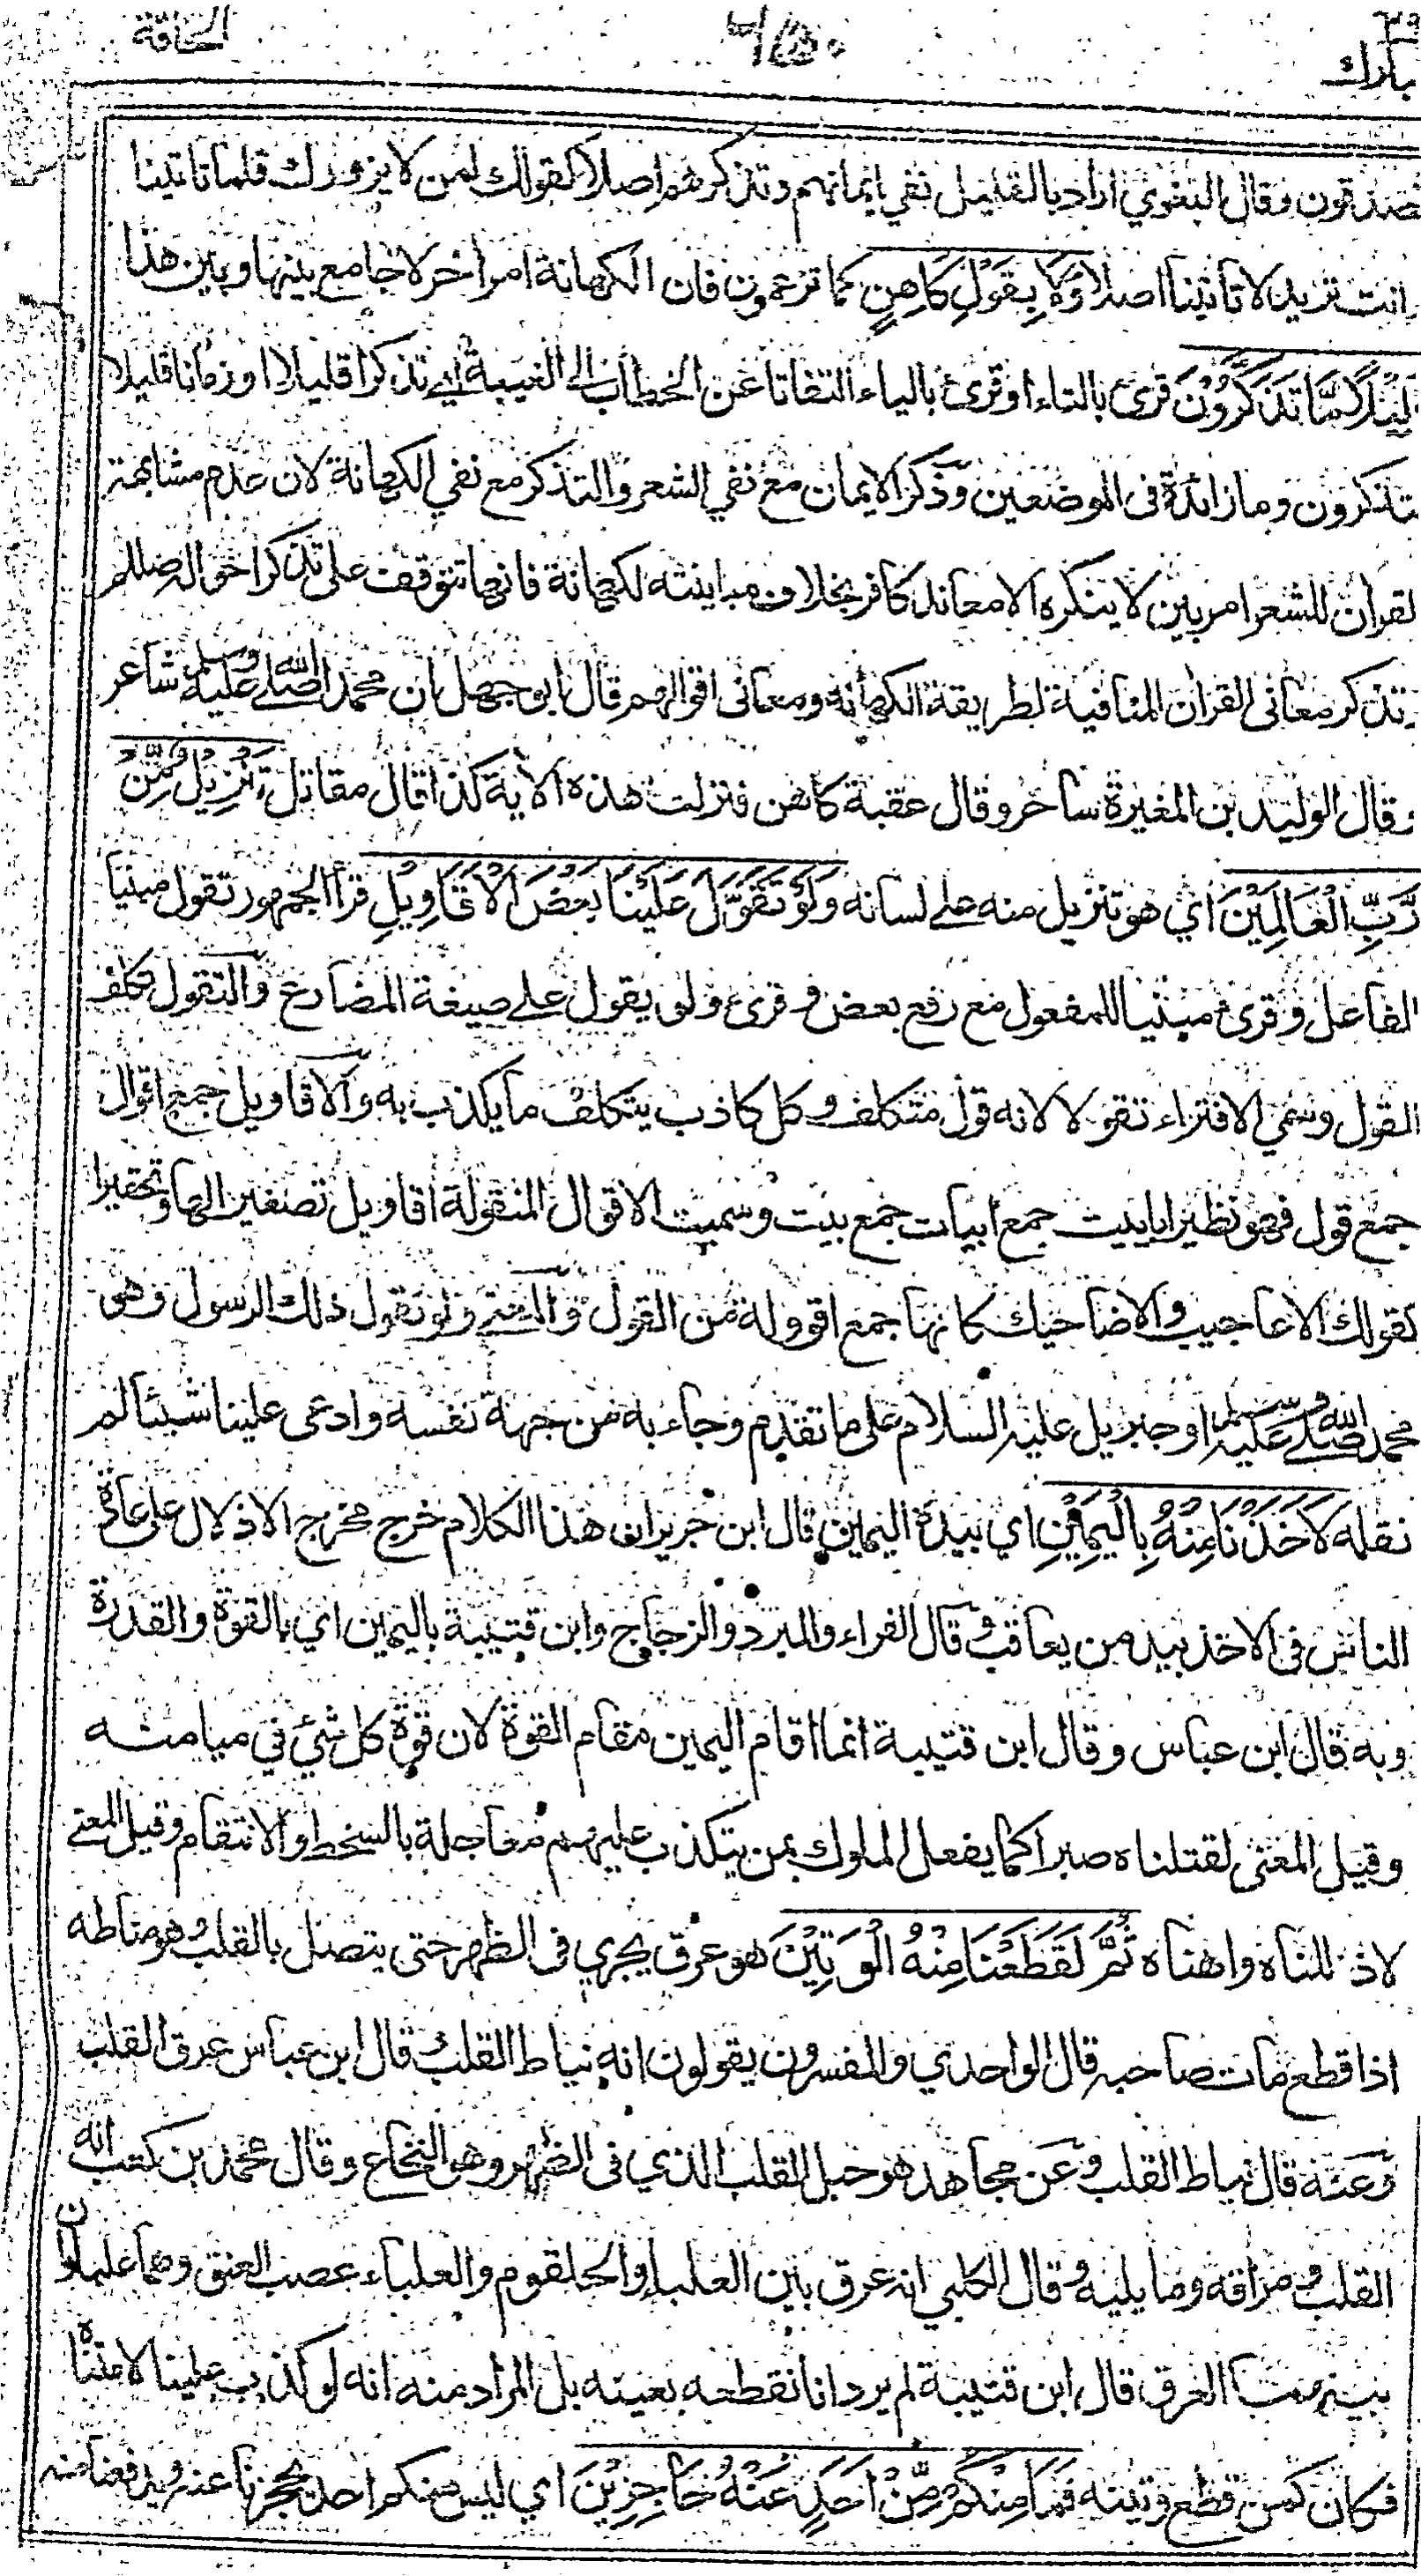 الحاقة
٤٥٠
٢٩
تبارك
تصدقون وقال البغوي اراد بالقليل نفي ايمانهم وتذكرهم اصلا كقولك لمن لا يزورك قلما تاتينا
وانت تريد لا تاتينا اصلا وَلَا بِقَوْلِ كَاهِنٍ كما تزعمون فان الكهانة امر آخر لا جامع بينها وبين هذا
قَلِيْلًا مَّا تَذَكَّرُوْنَ قرئ بالتاء وقرئ بالياء التفاتا عن الخطاب الى الغيبة اي تذكرا قليلا او زمانا قليلا
تتذكرون وما زائدة فى الموضعين وذكر الايمان مع نفي الشعر والتذكر مع نفي الكهانة لان عدم مشابهة
القرآن للشعر امر بين لا ينكره الا معاند كافر بخلاف مباينته لكهانة فانها تتوقف على تذكر احواله صللم
وتذكر معانى القرآن المنافية لطريقة الكهانة ومعانى اقوالهم قال ابو جهل ان محمدا صلى الله عليه وسلم شاعر
وقال الوليد بن المغيرة ساحر وقال عقبة كاهن فنزلت هذه الآية كذا قال مقاتل تَنْزِيْلٌ مِّنْ
رَّبِّ الْعَالَمِيْنَ اي هو تنزيل منه على لسانه وَلَوْ تَقَوَّلَ عَلَيْنَا بَعْضَ الْاَقَاوِيْلِ قرأ الجمهور تقول مبنيا
الفاعل وقرئ مبنيا للمفعول مع رفع بعض وقرئ ولو يقول على صيغة المضارع والتقول تكلف
القول وسمي الافتراء تقولا لانه قول متكلف وكل كاذب يتكلف ما يكذب به والاقاويل جمع اقوال
جمع قول فهو نظير ابابيت جمع ابيات جمع بيت وسميت الاقوال المنقولة اقاويل تصغيرا لها وتحقيرا
كقولك الاعاجيب والاضاحيك كانها جمع اقوولة من القول والمعنى ولو تقول ذلك الرسول وهى
محمد صلى الله عليه وسلم او جبريل عليه السلام على ما تقدم وجاء به من جهة نفسه وادعى علينا شيئا لم
نقله لَاَخَذْنَا مِنْهُ بِالْيَمِيْنِ اي بيده اليمين قال ابن جريران هذا الكلام خرج مخرج الاذلال على عادة
الناس فى الاخذ بيد من يعاقب وقال الفراء والمبرد والزجاج وابن قتيبة باليمين اي بالقوة والقدرة
وبه قال ابن عباس وقال ابن قتيبة انما اقام اليمين مقام القوة لان قوة كل شيء في ميامنه
وقيل المعنى لقتلناه صبرا كما يفعل الملوك بمن يتكذب عليهم معاجلة بالسخط والانتقام وقيل المعنى
لاذللناه واهناه ثُمَّ لَقَطَعْنَا مِنْهُ الْوَتِيْنَ هو عرق يجري فى الظهر حتى يتصل بالقلب وهو مناطه
اذا قطع مات صاحبه قال الواحدي والمفسرون يقولون انه نياط القلب قال ابن عباس عرق القلب
وعنه قال نياط القلب وعن مجاهد هو حبل القلب الذي فى الظهر وهو النخاع وقال محمد بن كعب انه
القلب ومراقه وما يليه وقال الكلبي انه عرق بين العلباء والحلقوم والعلباء عصب العنق وهما علباوان
بينهما العرق قال ابن قتيبة لم يرد انا نقطعه بعينه بل المراد منه انه لو كذب علينا لامتناه
فكان كمن قطع وتينه فَمَا مِنْكُمْ مِّنْ اَحَدٍ عَنْهُ حَاجِزِيْنَ اي ليس منكم احد يحجزنا عنه ويدفعنا منه